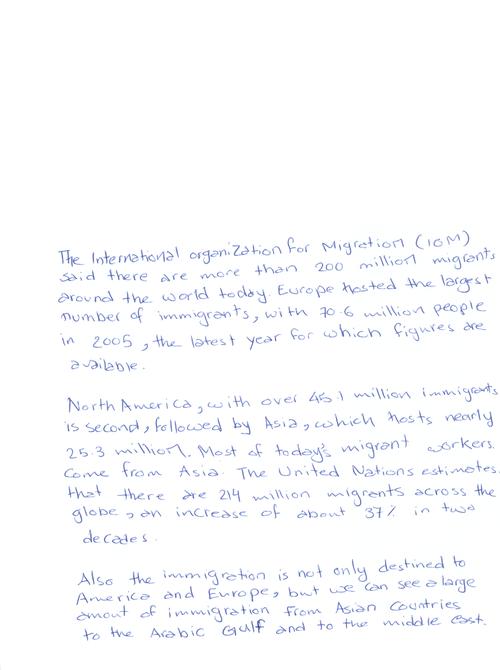 The International organization for Migration (IOM)
said there are more than 200 million migrants
around the world today. Europe hosted the largest
number of immigrants, with 70.6 million people
in 2005, the latest year for which figures are
available.
North America, with over 45.1 million immigrants
is second, followed by Asia, which hosts nearly
25.3 million. Most of today's migrant workers.
Come from Asia. The United Nations estimates.
that there are 214 million migrants across the
globe, an increase of about 37% in two
decades.
Also the immigration is not only destined to
America and Europe, but we can see a large
amout of immigration from Asian Countries
to the Arabic Gulf and to the middle east.